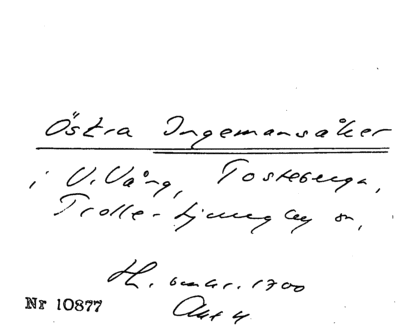 Östra Ingemansåker
i V. Vång, Tosteberga,
Trolle-Ljungby sn,
H. omkr. 1700
Nr 10877 Akt 4